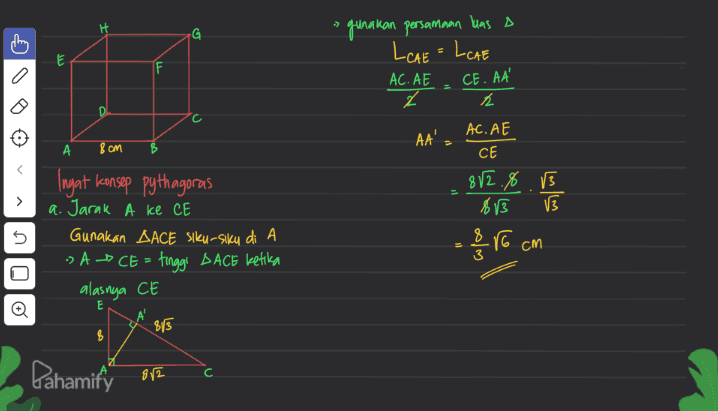 H
G
E
F
D
C
A
8 cm
B
Ingat konsep pythagoras
a. Jarak A ke CE
Gunakan ΔACE siku-siku di A
-> A -> CE = tinggi ΔACE ketika
alasnya CE
E
A'
8
8√3
A
8√2
C
Pahamify
-> gunakan persamaan luas Δ
L CAE = L CAE
AC.AE / 2 = CE.AA' / 2
AA' = AC.AE / CE
= 8√2.8 / 8√3 . √3 / √3
= 8/3 √6 cm